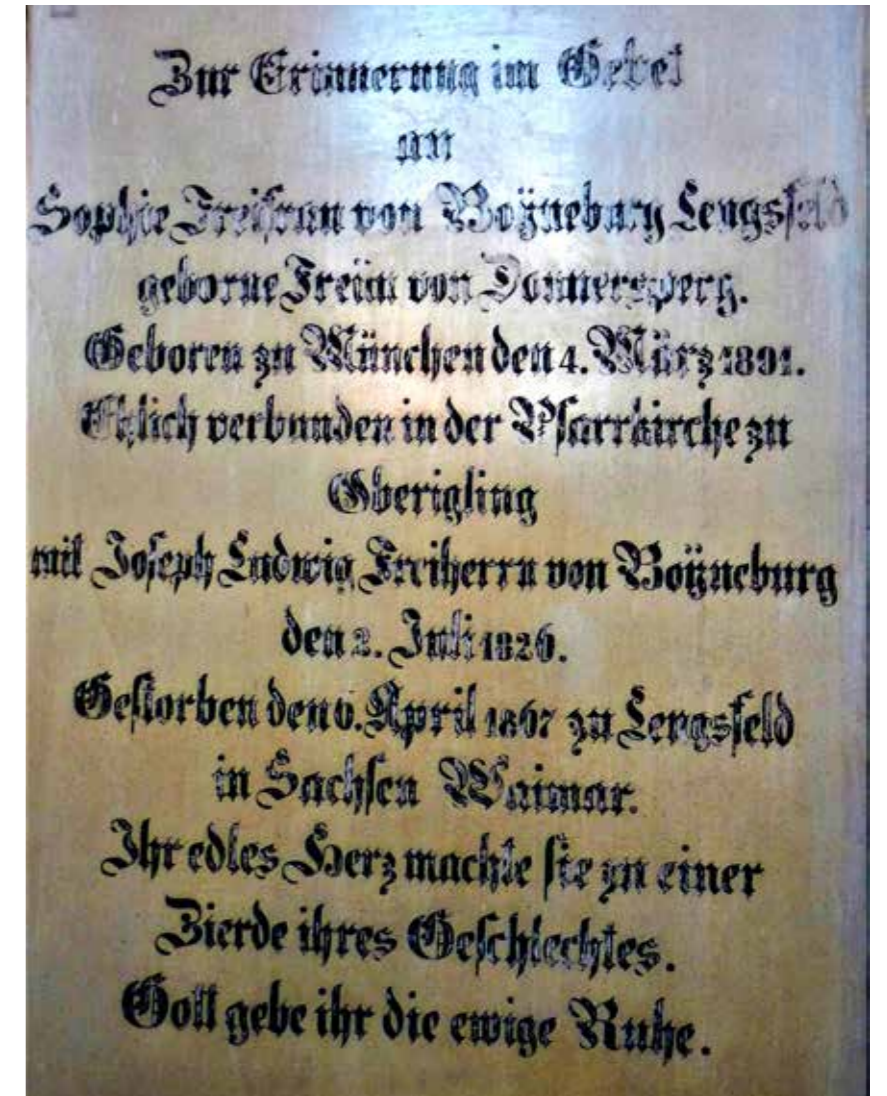 Zur Erinnerung im Gebet
an
Sophie Freifrau von Boÿneburg Lengsfeld
geborne Freiin von Donnersperg.
Geboren zu München den 4. März 1801.
Ehlich verbunden in der Pfarrkirche zu
Oberigling
mit Joseph Ludwig Freiherrn von Boÿneburg
den 2. Juli 1826.
Gestorben den 6. April 1867 zu Lengsfeld
in Sachsen Waimar.
Ihr edles Herz machte sie zu einer
Zierde ihres Geschlechtes.
Gott gebe ihr die ewige Ruhe.